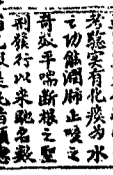 考驗實有化痰為水
之功能潤肺止咳之
奇效平喘斷根之聖
劑發行以來馳名數